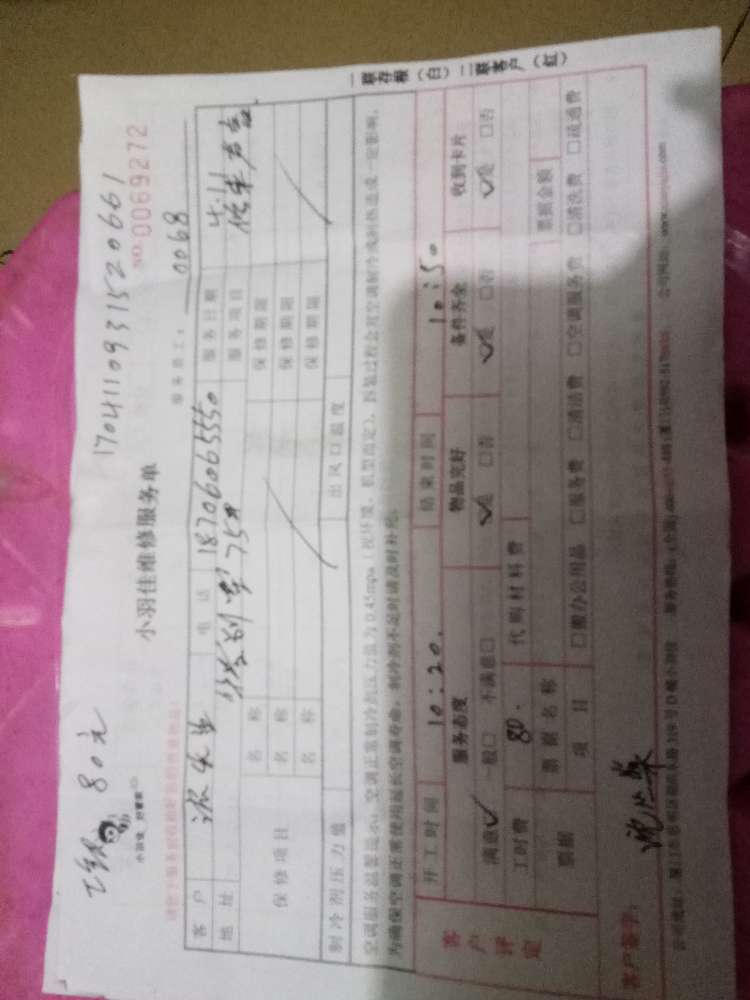 1704110931520661
80元
小羽佳 好管家
NO.0069272
小羽佳维修服务单
服务员工：0068
客户 电话 18706065550 服务日期 4.11
地址 服务项目
保修项目 名称 保修期限
名称 保修期限
名称 保修期限
制冷剂压力值 出风口温度
空调服务温馨提示：空调正常制冷剂压力值为0.45mpa（视环境、机型而定），拆装过程会对空调制冷或制热造成一定影响，
为确保空调正常使用延长空调寿命，制冷剂不足时请及时补充。
客户评定
开工时间 10:20. 结束时间 10:50
服务态度 物品完好 备件齐全 收到卡片
满意✓ 一般□ 不满意□ ✓是 □否 ✓是 □否 ✓是 □否
工时费 80. 代购材料费
票据 票据名称 票据金额
项目 □搬办公用品 □服务费 □清洁费 □空调服务费 □清洗费 □疏通费
客户签字：
一联存根（白）二联客户（红）